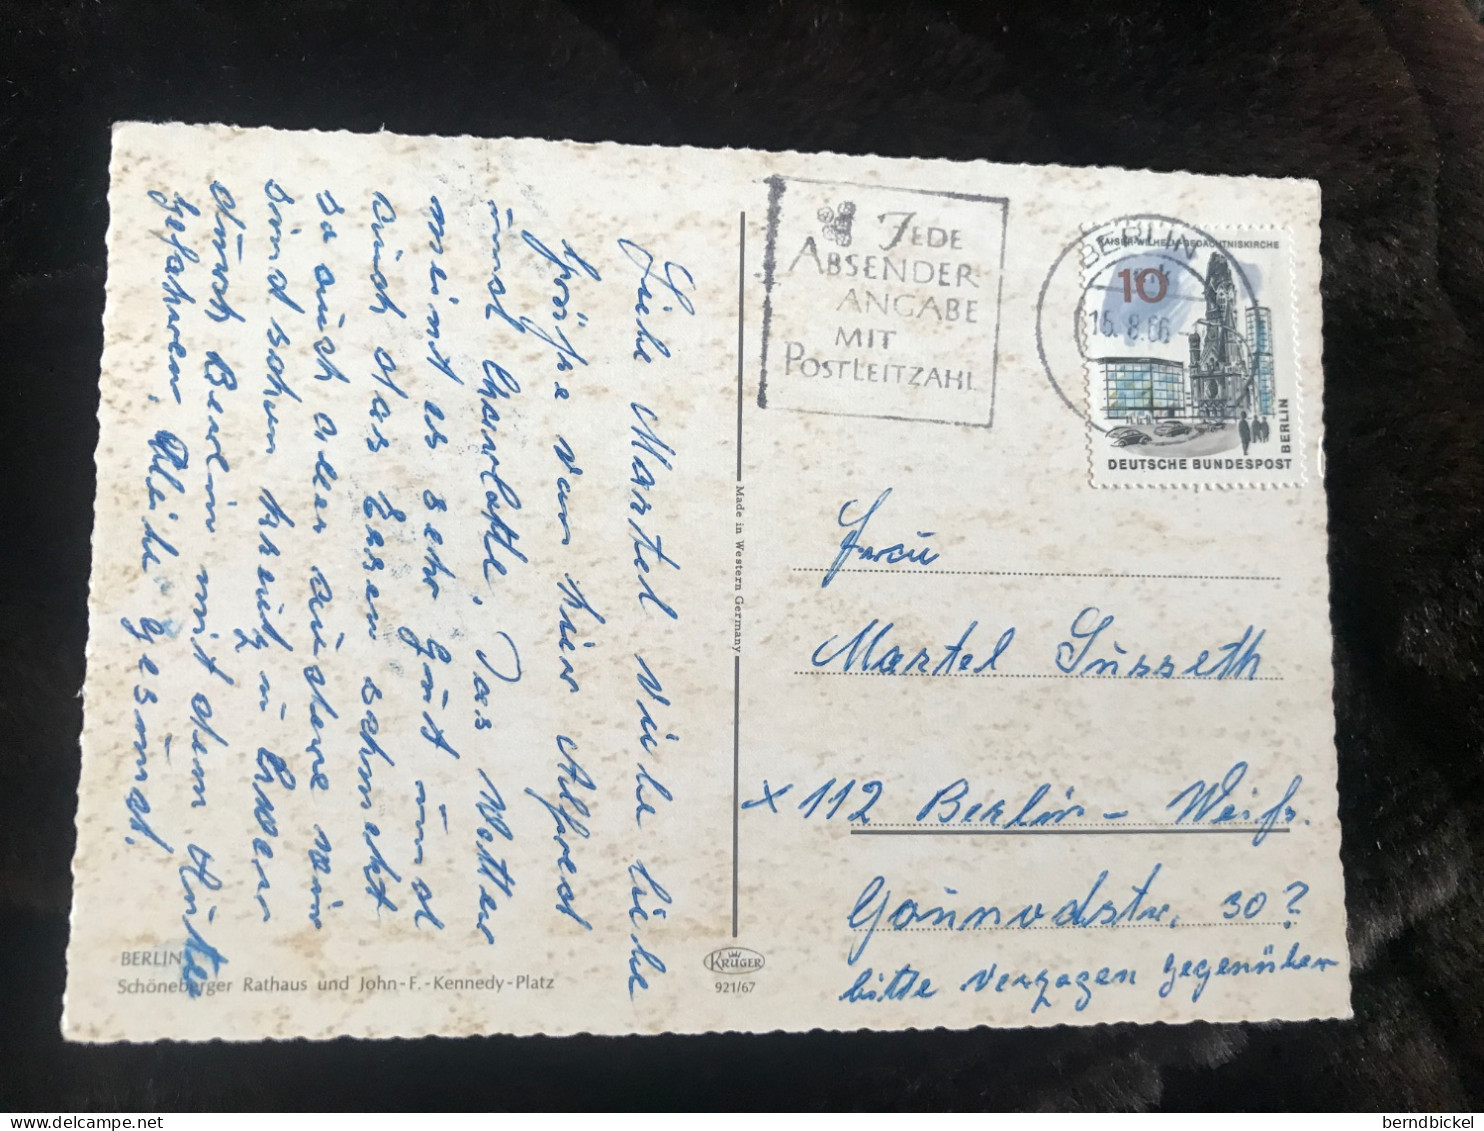 Liebe Martel viele liebe
Grüße von hier Alfred
und Charlotte. Das Wetter
meint es sehr gut und
auch das Essen schmeckt
so auch aller
sind schon kreuz u quer
durch Berlin mit dem
gefahren. Bleibe Gesund.
BERLIN
Schöneberger Rathaus und John-F.-Kennedy-Platz
Made in Western Germany
KRÜGER
921/67
JEDE
ABSENDER
ANGABE
MIT
POSTLEITZAHL
BERLIN
15.8.66
KAISER-WILHELM-GEDÄCHTNISKIRCHE
10
BERLIN
DEUTSCHE BUNDESPOST
Frau
Martel Susseth
x 112 Berlin - Weißs.
Gounodstr. 30?
bitte Verzogen gegenüber
berndbickel